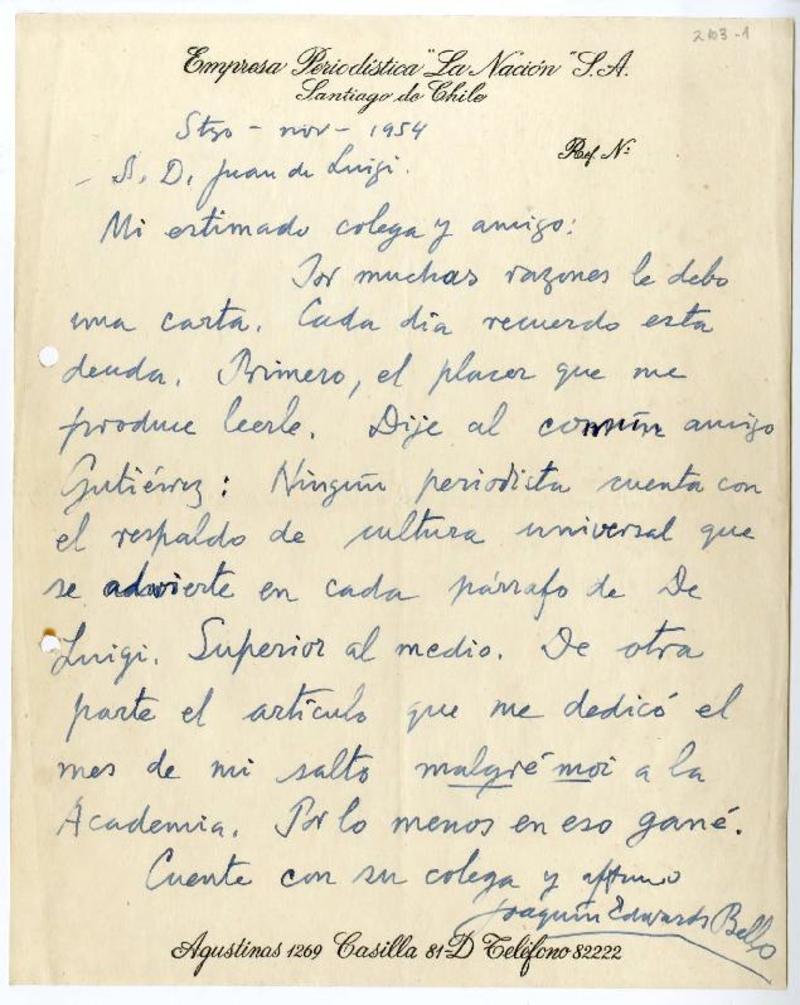 2103-1
Empresa Periodística "La Nación" S.A.
Santiago de Chile
Stgo - nov - 1954
Ref. Nº
- S. D. Juan de Luigi.
Mi estimado colega y amigo:
Por muchas razones le debo
una carta. Cada día recuerdo esta
deuda. Primero, el placer que me
produce leerle. Dije al común amigo
Gutiérrez: Ningún periodista cuenta con
el respaldo de cultura universal que
se advierte en cada párrafo de De
Luigi. Superior al medio. De otra
parte el artículo que me dedicó el
mes de mi salto malgré moi a la
Academia. Por lo menos en eso gané.
Cuente con su colega y affmo
Joaquín Edwards Bello
Agustinas 1269 Casilla 81-D Teléfono 82222